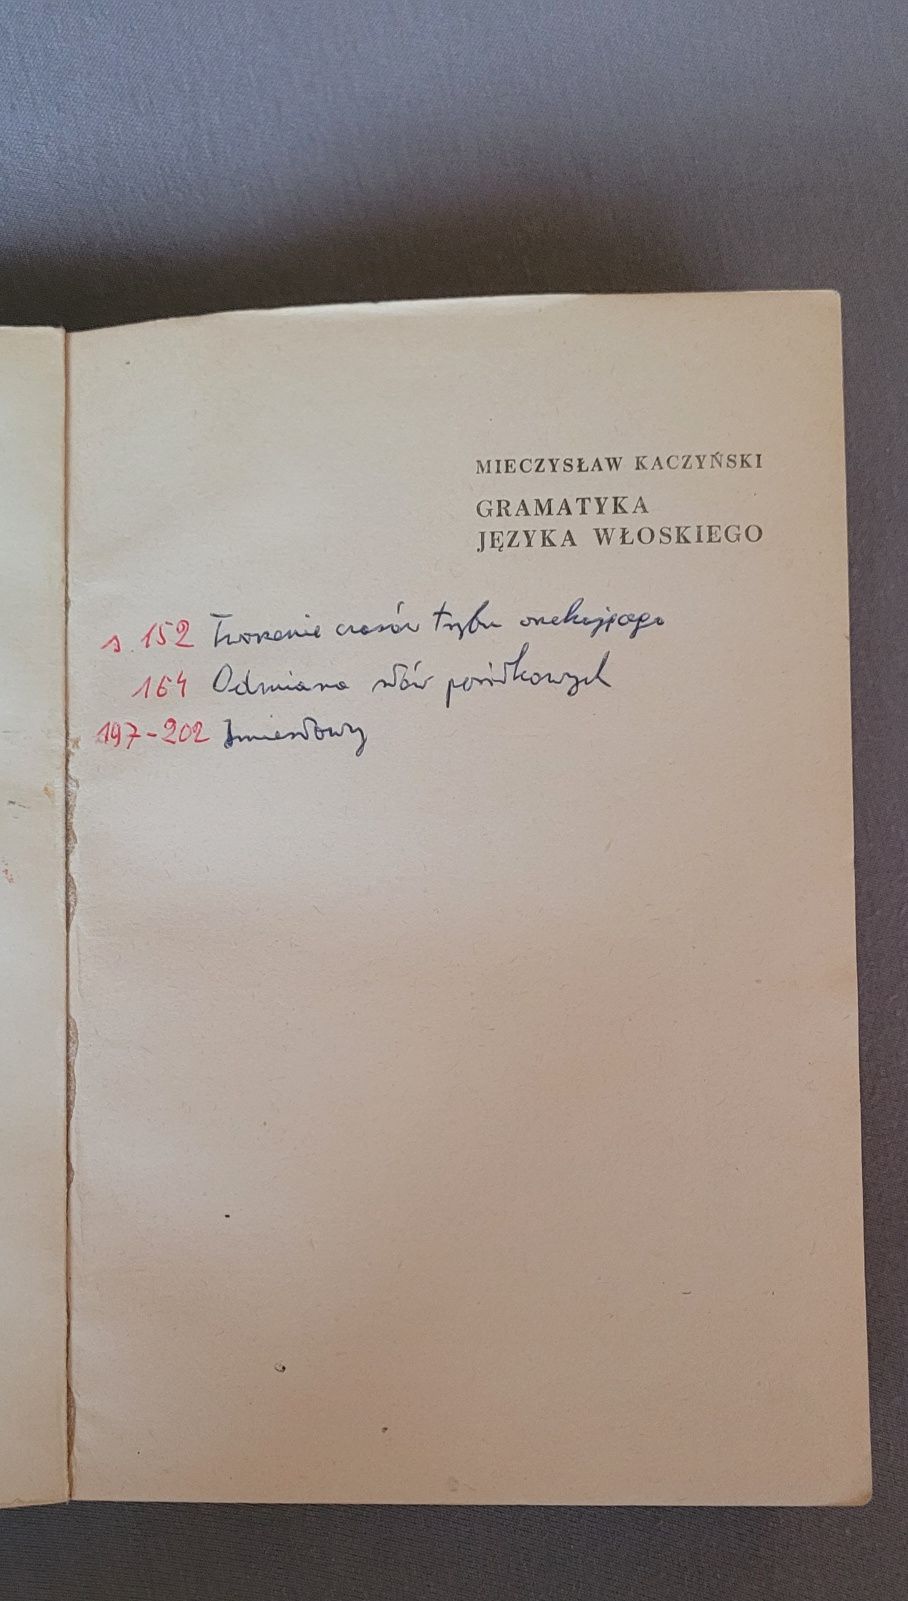 MIECZYSŁAW KACZYŃSKI
GRAMATYKA
JĘZYKA WŁOSKIEGO
s. 152 Tworzenie czasów trybu orzekającego
164 Odmiana słów posiłkowych
197-202 Imiesłowy